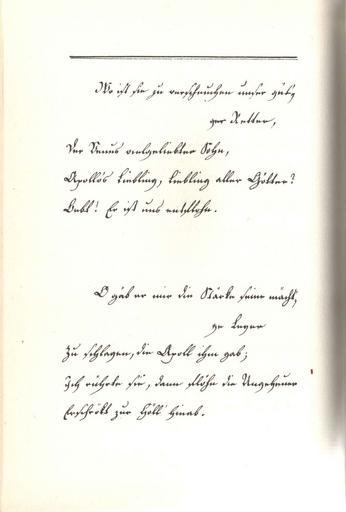 Wo ist sie zu verscheuchen unser güti,
ger Retter,
Der Venus vielgeliebter Sohn,
Apollo's Liebling, Liebling aller Götter?
Lebt! Er ist uns entflohn.
O gäb er mir die Stärke seine mächti,
ge Leyer
Zu schlagen, die Apoll ihm gab;
Ich rührte sie, dann flöhn die Ungeheuer
Erschröckt zur Höll' hinab.